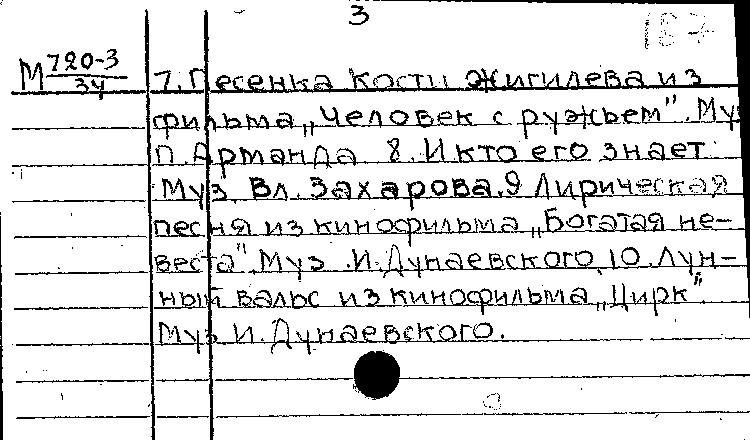 3
187
М 720-3
34
7. Песенка Кости Жигилева из
фильма „Человек с ружьем". Му
П. Арманда 8. И кто его знает
Муз. Вл. Захарова. 9 Лирическая
песня из кинофильма „Богатая не-
веста". Муз. И. Дунаевского. 10. Лун-
ный вальс из кинофильма „Цирк".
Муз И. Дунаевского.